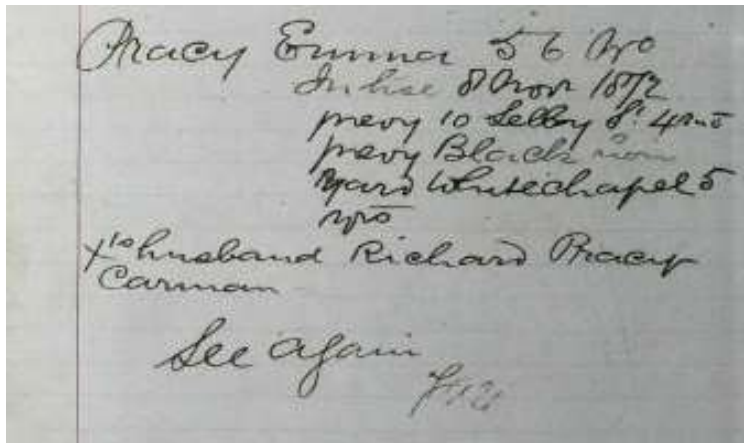 Pracy Emma 56 yrs
In hse 8 Novr 1872
prevy 10 Selby St 4 mns
prevy Black Lion
Yard Whitechapel 5
yrs
husband Richard Pracy
Carman
See again